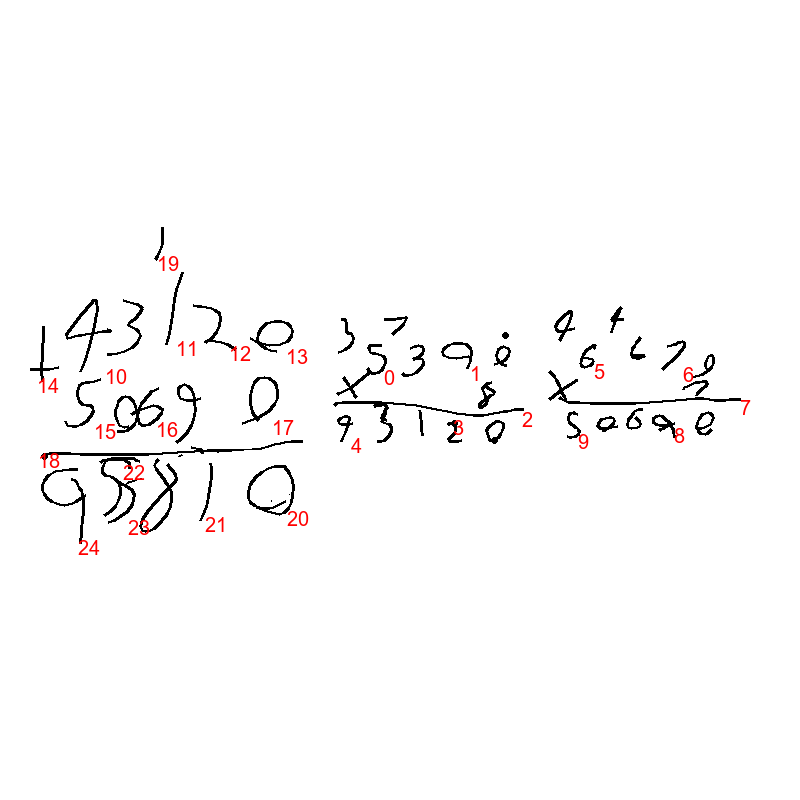 1
19
+ 43120
14 10 11 12 13
50690
15 16 17
18 22
93810
23 21 20
24
3 7
5390
0 1
× 8
2
43120
4 3
4 4
6670
5 6
× 7
7
50690
9 8